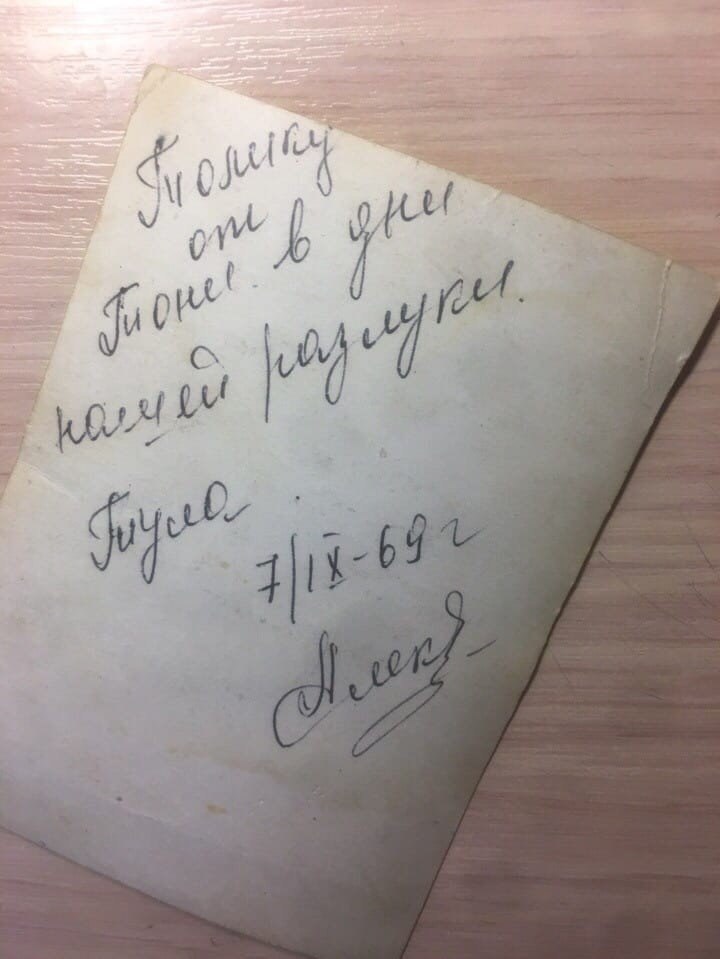 Толику
от
Тони. в дни
нашей разлуки.
Тула
7/IX-69 г